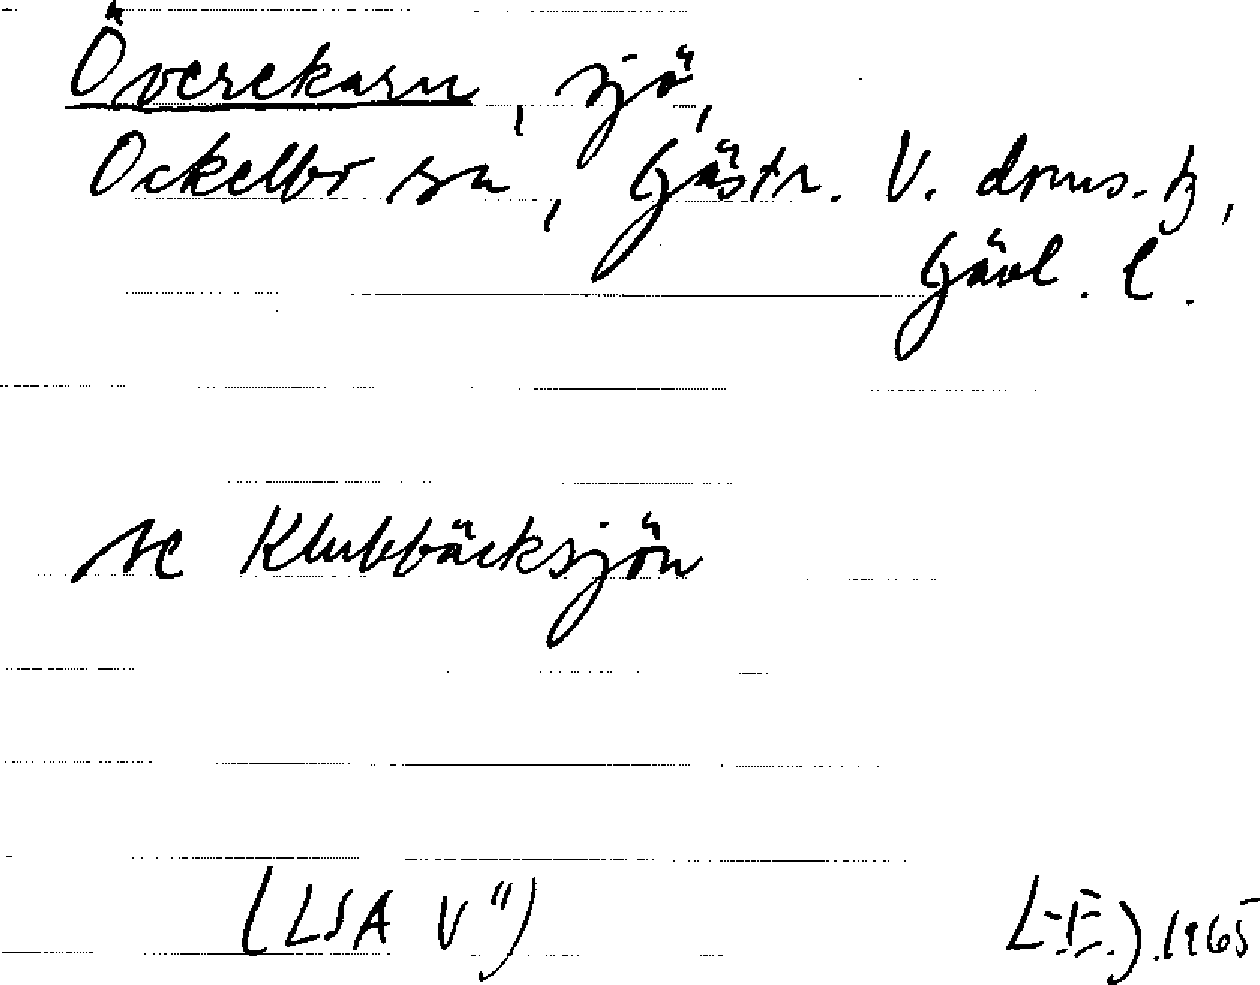 Överekarn, sjö,
Ockelbo sn, Gästr. V. doms.-tg,
Gävl. l.
se Klubbäcksjön
(LSA V")
L-E.J. 1965